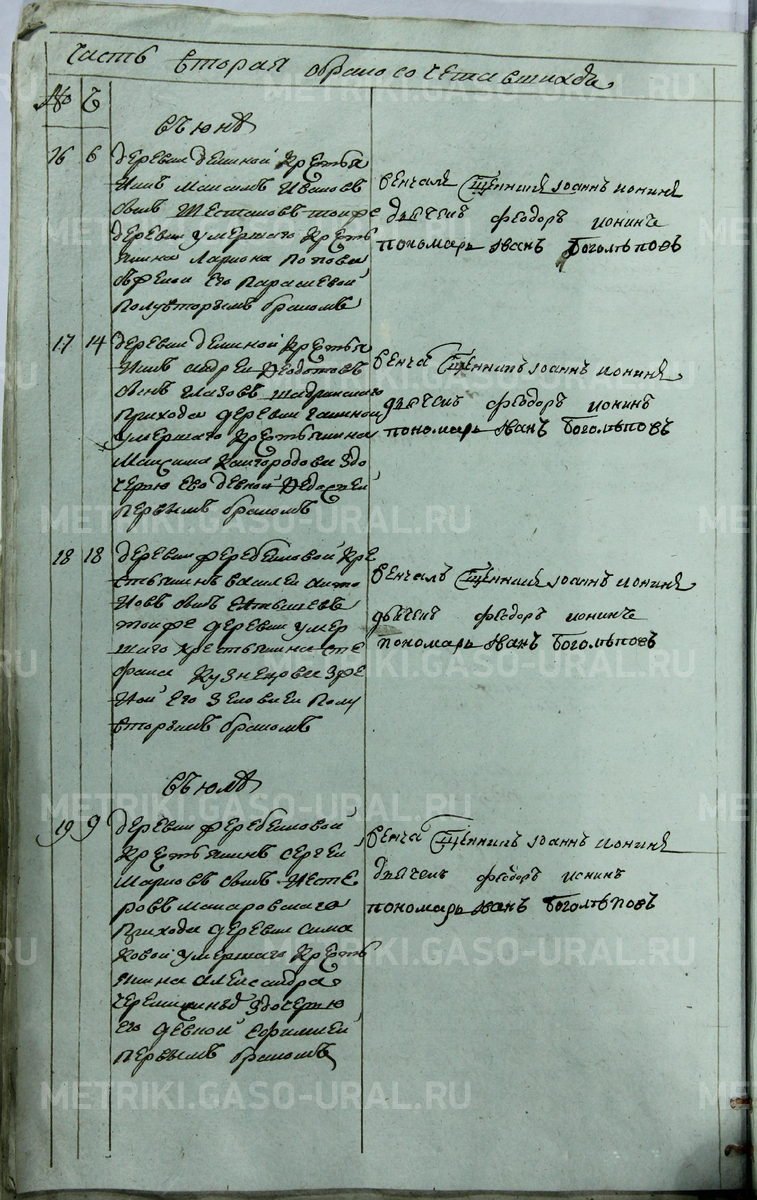 Часть вторая о браносочетавшихся
№ Ч
въ июнѣ
16 6 деревни деминой крестья
нинъ Максимъ Ивановъ
сынъ Шестаковъ тоя же
деревни умершаго кресть
янина Лариона Попова
з женой его Параскевой
полувторымъ бракомъ
венчалъ Священникъ Іоаннъ Ионинъ
дьячекъ Феодоръ Ионинъ
пономарь Иванъ Боголѣповъ
17 14 деревни деминой крестья
нинъ андрей Федотовъ
сынъ Глазовъ
прихода деревни
умершаго крестьянина
Максима Кайгородова з до
черью его девкой Федосьей
первымъ бракомъ
венча Священникъ Іоаннъ Ионинъ
дьячекъ Феодоръ Ионинъ
пономарь Иванъ Боголѣповъ
18 18 деревни кре
стьянинъ василей анто
новъ сынъ
тоя же деревни умер
шаго крестьянина сте
фана Кузнецова з же
ной его Зеновией полу
вторымъ бракомъ
венчалъ Священникъ Іоаннъ Ионинъ
дьячекъ Феодоръ Ионинъ
пономарь Иванъ Боголѣповъ
въ июлѣ
19 9 деревни
крестьянинъ сергей
Марковъ сынъ Несте
ровъ макаровскаго
прихода деревни сима
ковой умершаго кресть
янина александра
з дочерью
его девкой Ефимией
первымъ бракомъ
венча Священникъ Іоаннъ Ионинъ
дьячекъ Феодоръ Ионинъ
пономарь Иванъ Боголѣповъ
METRIKI.GASO-URAL.RU